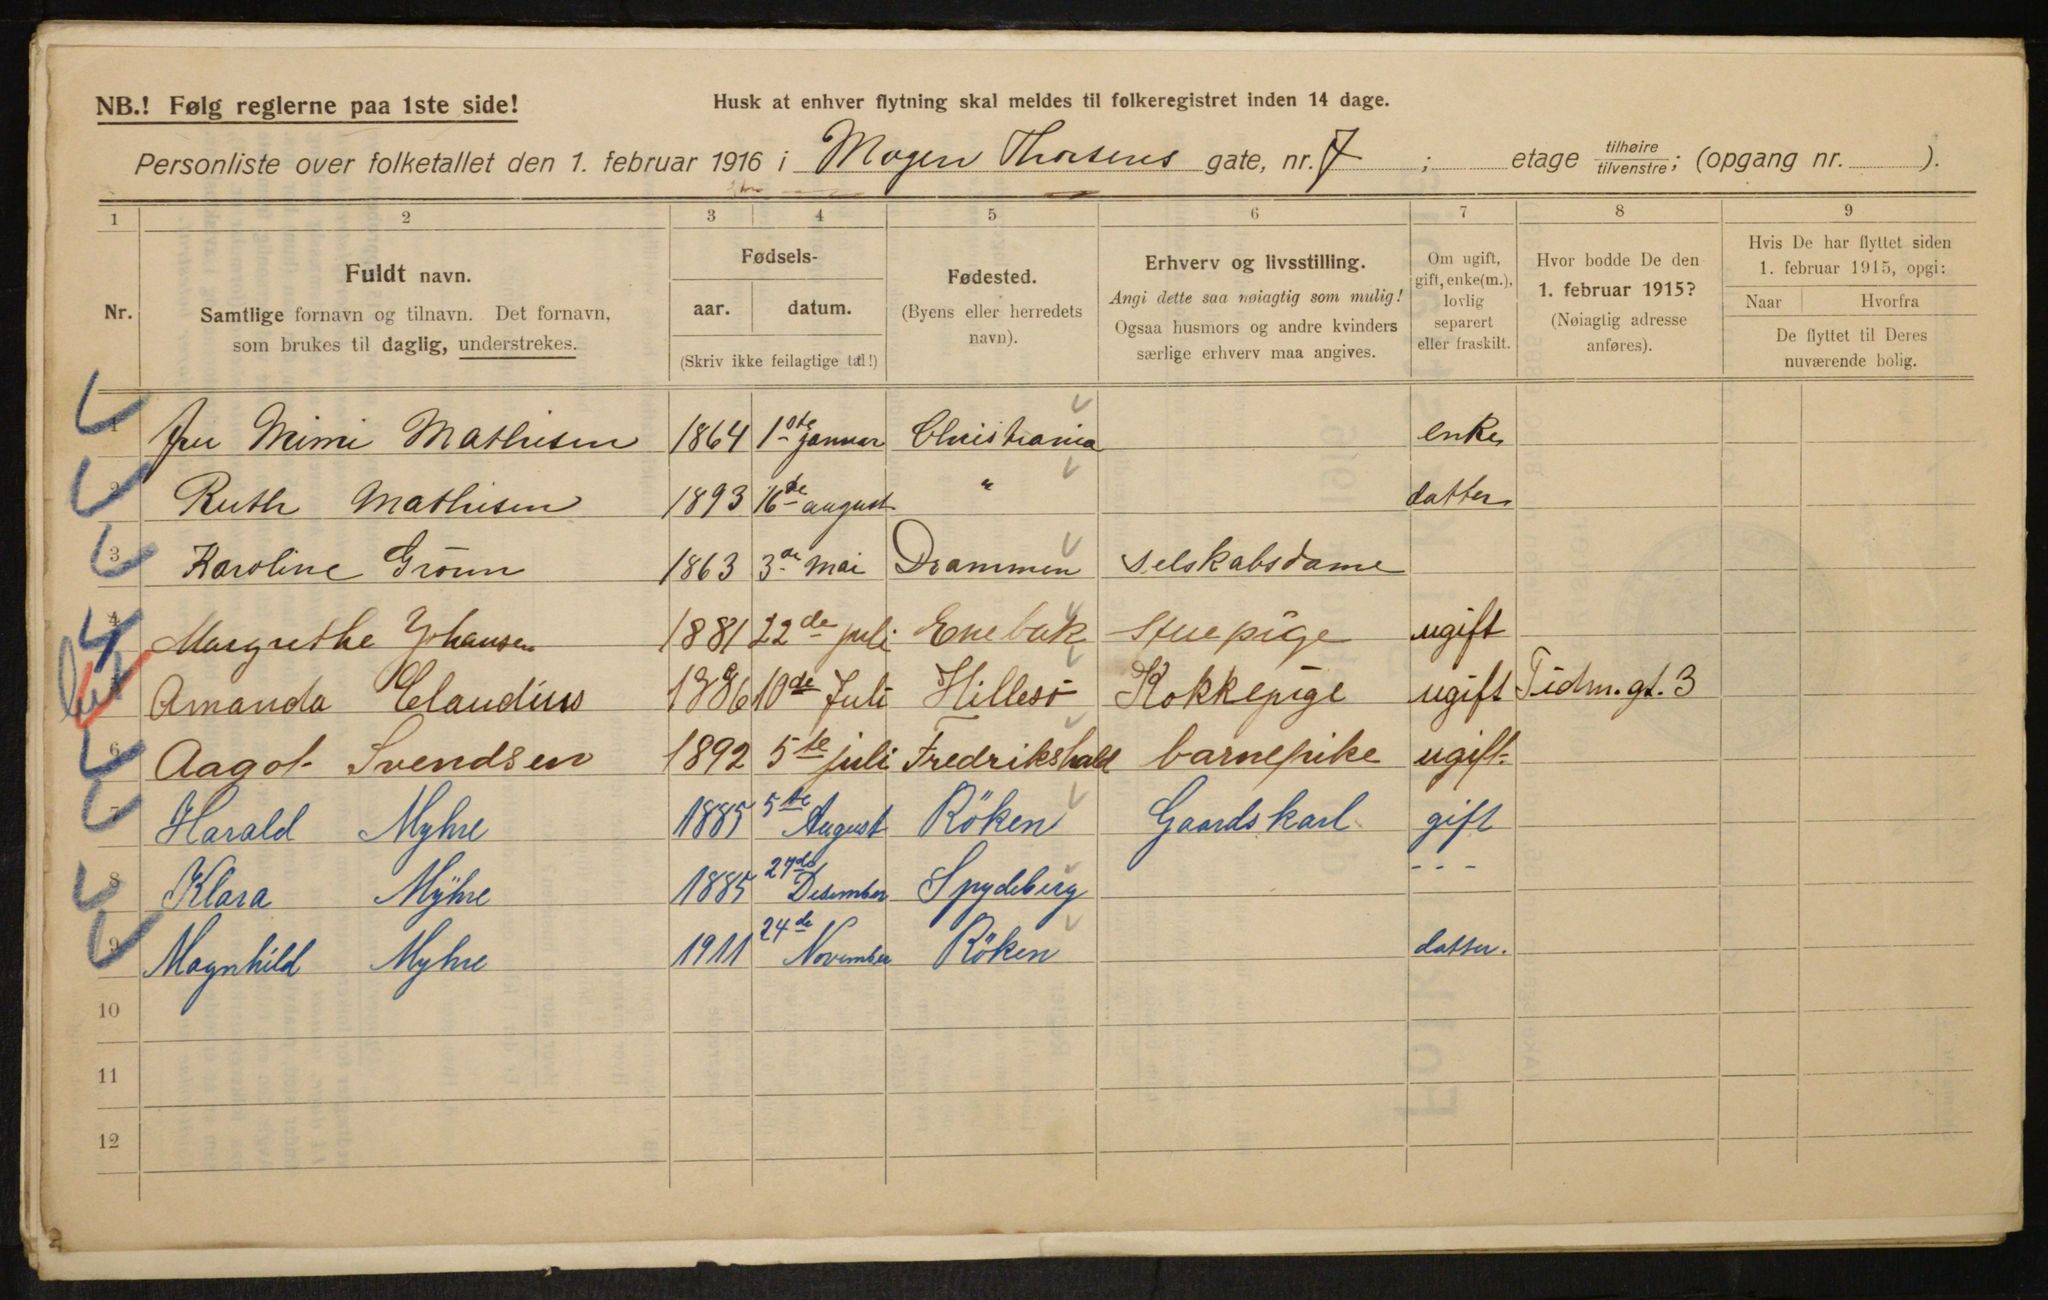 NB.! Følg reglerne paa 1ste side!
Husk at enhver flytning skal meldes til folkeregistret inden 14 dage.
Personliste over folketallet den 1. februar 1916 i Mogen Thorsens gate, nr. 7 ; etage tilhøire/tilvenstre; (opgang nr. ).
1 2 3 4 5 6 7 8 9
Nr.
Fuldt navn.
Samtlige fornavn og tilnavn. Det fornavn,
som brukes til daglig, understrekes.
Fødsels-
aar. datum.
(Skriv ikke feilagtige tal!)
Fødested.
(Byens eller herredets
navn).
Erhverv og livsstilling.
Angi dette saa nøiagtig som mulig!
Ogsaa husmors og andre kvinders
særlige erhverv maa angives.
Om ugift,
gift, enke(m.),
lovlig
separert
eller fraskilt.
Hvor bodde De den
1. februar 1915?
(Nøiagtig adresse
anføres).
Hvis De har flyttet siden
1. februar 1915, opgi:
Naar Hvorfra
De flyttet til Deres
nuværende bolig.
1 fru Mimi Mathisen 1864 1ste januar Christiania enke
2 Ruth Mathisen 1893 16de august " datter
3 Karoline Grönn 1863 3de Mai Drammen selskabsdame
4 Margrethe Johansen 1881 22de juli Enebak Stuepige ugift
5 Amanda Claudius 1886 10de Juli Hillesö Kokkepige ugift Tidm. gt. 3
6 Aagot Svendsen 1892 5te juli Fredrikshald barnepike ugift
7 Harald Myhre 1885 5te August Röken Gaardskarl gift
8 Klara Myhre 1885 27de Desember Spydeberg - - -
9 Magnhild Myhre 1911 24de November Röken datter.
10
11
12